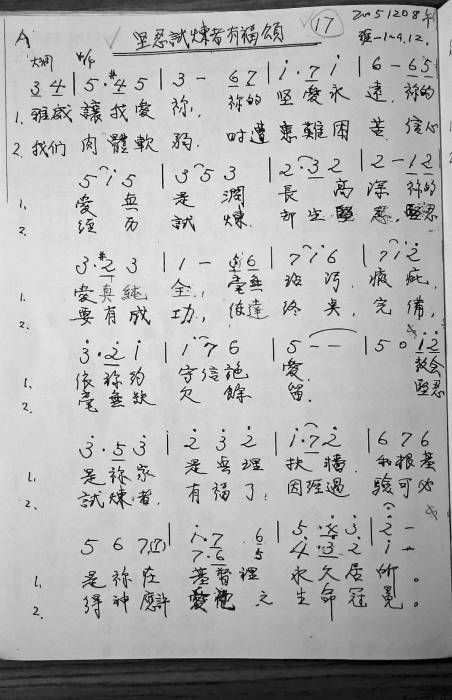 A
坚忍試煉者有福頌
17
20051208
雅一1~4.12.
大調
3 4 | 5·#4 5 | 3 - 6 7 | i·7 i | 6 - 6 5
1. 讓我愛祢, 祢的坚爱永遠, 祢的
2. 我们肉體軟弱. 时遭患難困苦. 信心
5 i 5 | 3 5 3 | 2·3 2 | 2 - 1 2
1. 爱 是 長 高 深 祢的
2. 經历試煉. 却生堅忍, 堅忍
3·#2 3 | 1 - 5 6 | 7 i 6 | 7 i 2
1. 爱真純全, 毫無玷污, 瘢疵,
2. 要有成功, 完備,
3·2 i | i 7 6 | 5 - - | 5 0 i 2
1. 依祢约守信 爱. 教会
2. 毫無缺欠餘 堅忍
3·5 3 | 2 3 2 | i·7 2 | 6 7 6
1. 是祢家 是 理 牆, 和根基
2. 試煉者. 有福了, 因经過 驗可必
5 6 7 | i·7 6 | 5·4 3 | 2 -
7·6 5 4·3 2 i -
1. 是祢在基督裡永久居所。
2. 得神應許 之生命冠冕。